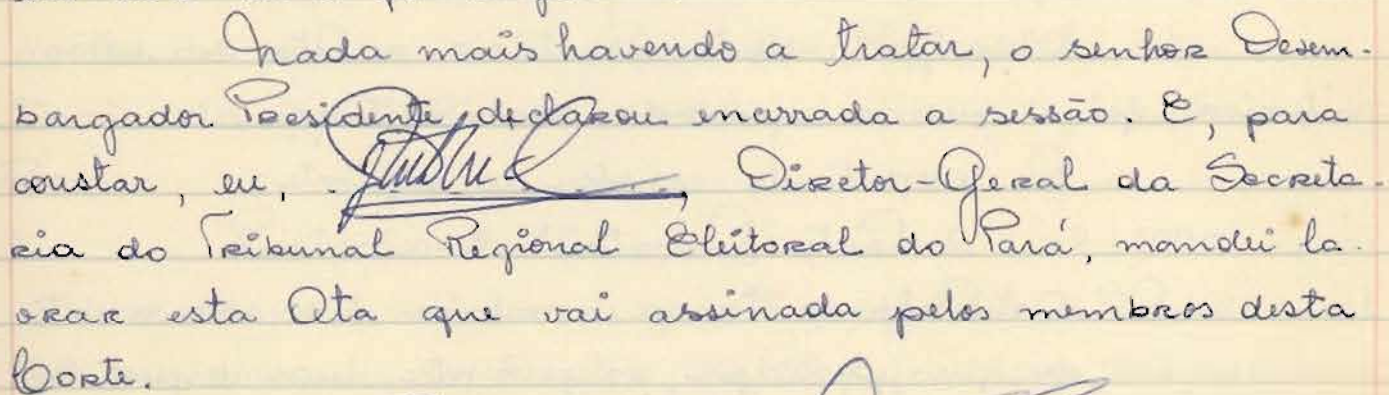 Nada mais havendo a tratar, o senhor Desem-
bargador Presidente, declarou encerrada a sessão. E, para
constar, eu, Diretor-Geral da Secreta-
ria do Tribunal Regional Eleitoral do Pará, mandei la-
vrar esta Ata que vai assinada pelos membros desta
Corte.